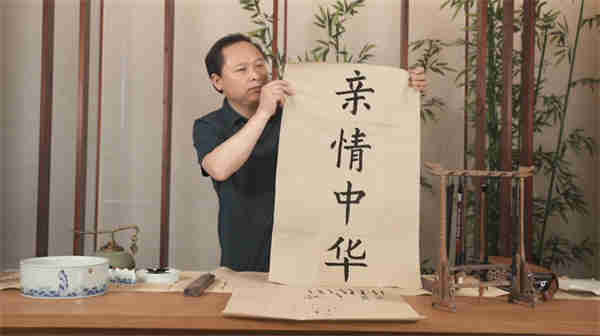 亲情中华